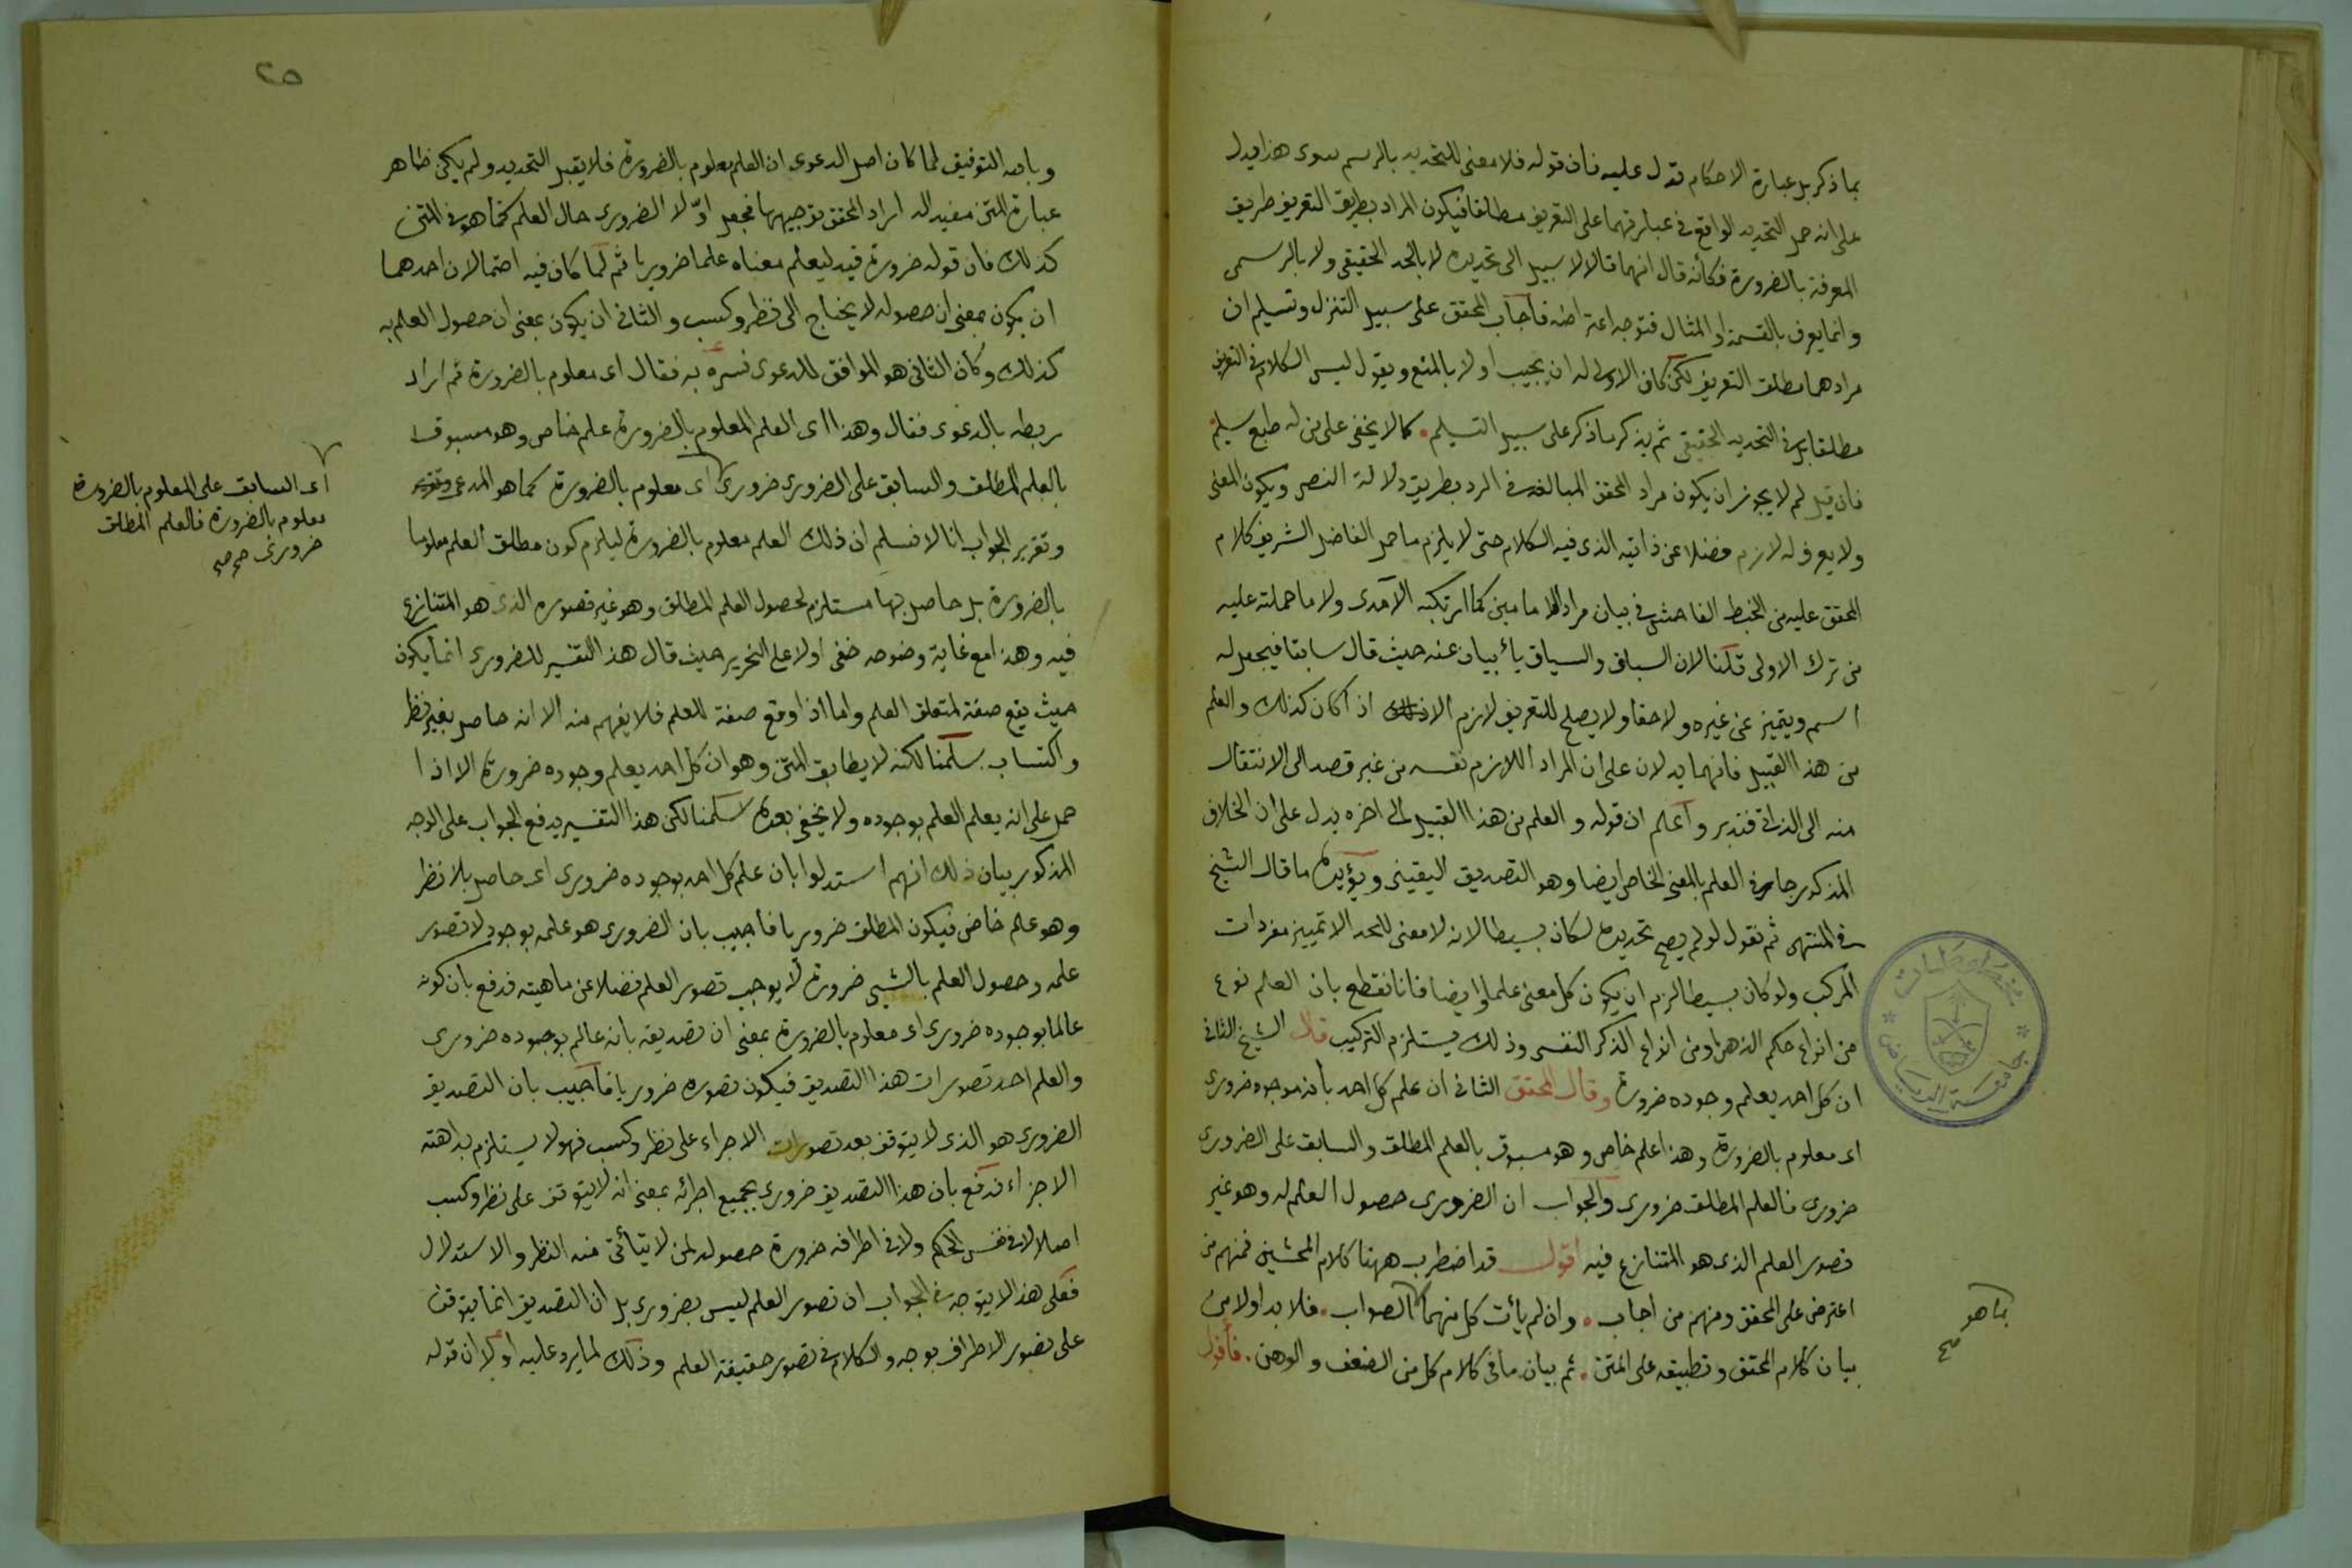 بما ذكر بل عبارة الاحكام تدل عليه فان قوله فلا معنى للتحديد بالرسم سوى هذا يدل
على انه حمل التحديد الواقع في عبارتهما على التعريف مطلقا فيكون المراد بطريق التعريف طريق
المعرفة بالضرورة فكأنه قال انهما قالا لا سبيل الى تحديده لا بالحد الحقيقى ولا بالرسمى
وانما يعرف بالقسمة او المثال فتوجه اعتراضه فاجاب المحقق على سبيل التنزل وتسليم ان
مرادهما مطلق التعريف لكن كان الاولى له ان يجيب اولا بالمنع ويقول ليس الكلام في التعريف
مطلقا بل في التحديد الحقيقى ثم يذكر ما ذكر على سبيل التسليم كما لا يخفى على من له طبع سليم
فان قيل لم لا يجوز ان يكون مراد المحقق المبالغة في الرد بطريق دلالة النص ويكون المعنى
ولا يعرف له لازم فضلا عن ذاتيه الذى فيه الكلام حتى لا يلزم ما حمل الفاضل الشريف كلام
المحقق عليه من الخبط الفاحش في بيان مراد الامامين كما ارتكبه الآمدى ولا ما حملته عليه
من ترك الاولى قلنا لان السباق والسياق يأبيان عنه حيث قال سابقا فيجعل له
اسم ويتميز عن غيره ولاحقا ولا يصلح للتعريف لازم الا اذا كان كذلك والعلم
من هذا القبيل فانهما يدلان على ان المراد اللازم نفسه من غير قصد الى الانتقال
منه الى الذاتى فتدبر واعلم ان قوله والعلم من هذا القبيل الى اخره يدل على ان الخلاف
المذكور جار في العلم بالمعنى الخاص ايضا وهو التصديق اليقينى ويؤيده ما قال الشيخ
في المنتهى ثم نقول لو لم يصح تحديده لكان بسيطا لانه لا معنى للحد الا تمييز مفردات
المركب ولو كان بسيطا لزم ان يكون كل معنى علما وايضا فانا نقطع بان العلم نوع
من انواع حكم الذهن او من انواع الذكر النفسى وذلك يستلزم التركيب قال الشيخ الثانى
ان كل احد يعلم وجوده ضرورة وقال المحقق الثانى ان علم كل احد بأنه موجود ضرورى
اى معلوم بالضرورة وهذا علم خاص وهو مسبوق بالعلم المطلق والسابق على الضرورى
ضرورى فالعلم المطلق ضرورى والجواب ان الضرورى حصول العلم له وهو غير
تصور العلم الذى هو المتنازع فيه اقول قد اضطرب ههنا كلام المحشين فمنهم من
اعترض على المحقق ومنهم من اجاب وان لم يأت كل منهما الصواب فلا بد اولا من
بيان كلام المحقق وتطبيقه على المتن ثم بيان ما في كلام كل من الضعف والوهن فأقول
بما هو
صح
٢٥
وبالله التوفيق لما كان اصل الدعوى ان العلم معلوم بالضرورة فلا يقبل التحديد ولم يكن ظاهر
عبارة المتن مفيدا له اراد المحقق توجيهها فجعل اولا الضرورى حال العلم كما هو في المتن
كذلك فان قوله ضرورة قيد ليعلم معناه علما ضروريا ثم لما كان فيه احتمالان احدهما
ان يكون بمعنى ان حصوله لا يحتاج الى نظر وكسب والثانى ان يكون بمعنى ان حصول العلم به
كذلك وكان الثانى هو الموافق للدعوى فسره به فقال اى معلوم بالضرورة ثم اراد
ربطه بالدعوى فقال وهذا اى العلم المعلوم بالضرورة علم خاص وهو مسبوق
بالعلم المطلق والسابق على الضرورى ضرورى اى معلوم بالضرورة كما هو المدعى
وتقرير الجواب انا لا نسلم ان ذلك العلم معلوم بالضرورة ليلزم كون مطلق العلم معلوما
بالضرورة بل حاصل بها مستلزم لحصول العلم المطلق وهو غير تصوره الذى هو المتنازع
فيه وهذا مع غاية وضوحه خفى اولا على النحرير حيث قال هذا التفسير للضرورى انما يكون
حيث يقع صفة لمتعلق العلم واما اذا وقع صفة للعلم فلا يفهم منه الا انه حاصل بغير نظر
واكتساب سلمنا لكنه لا يطابق المتن وهو ان كل احد يعلم وجوده ضرورة الا اذا
حمل على انه يعلم العلم بوجوده ولا يخفى بعده سلمنا لكن هذا التفسير يدفع الجواب على الوجه
المذكور بيان ذلك انهم استدلوا بان علم كل احد بوجوده ضرورى اى حاصل بلا نظر
وهو علم خاص فيكون المطلق ضروريا فاجيب بان الضرورى هو علمه بوجوده لا تصور
علمه وحصول العلم بالشيئ ضرورة لا يوجب تصور العلم فضلا عن ماهيته فدفع بان كونه
عالما بوجوده ضرورى اى معلوم بالضرورة بمعنى ان تصديقه بانه عالم بوجوده ضرورى
والعلم احد تصورات هذا التصديق فيكون تصوره ضروريا فاجيب بان التصديق
الضرورى هو الذى لا يتوقف بعد تصورات الاجزاء على نظر وكسب فهو لا يستلزم بداهته
الاجزاء فدفع بان هذا التصديق ضرورى بجميع اجزائه بمعنى انه لا يتوقف على نظر وكسب
اصلا لا في نفس الحكم ولا في اطرافه ضرورة حصوله لمن لا يتأتى منه النظر والاستدلال
فعلى هذا لا يتوجه في الجواب ان تصور العلم ليس بضرورى بل ان التصديق انما يتوقف
على تصور الاطراف بوجه والكلام في تصور حقيقة العلم وذلك لما يرد عليه اولا ان قوله
اى السابق على المعلوم بالضرورة
معلوم بالضرورة فالعلم المطلق
ضرورى صح صح